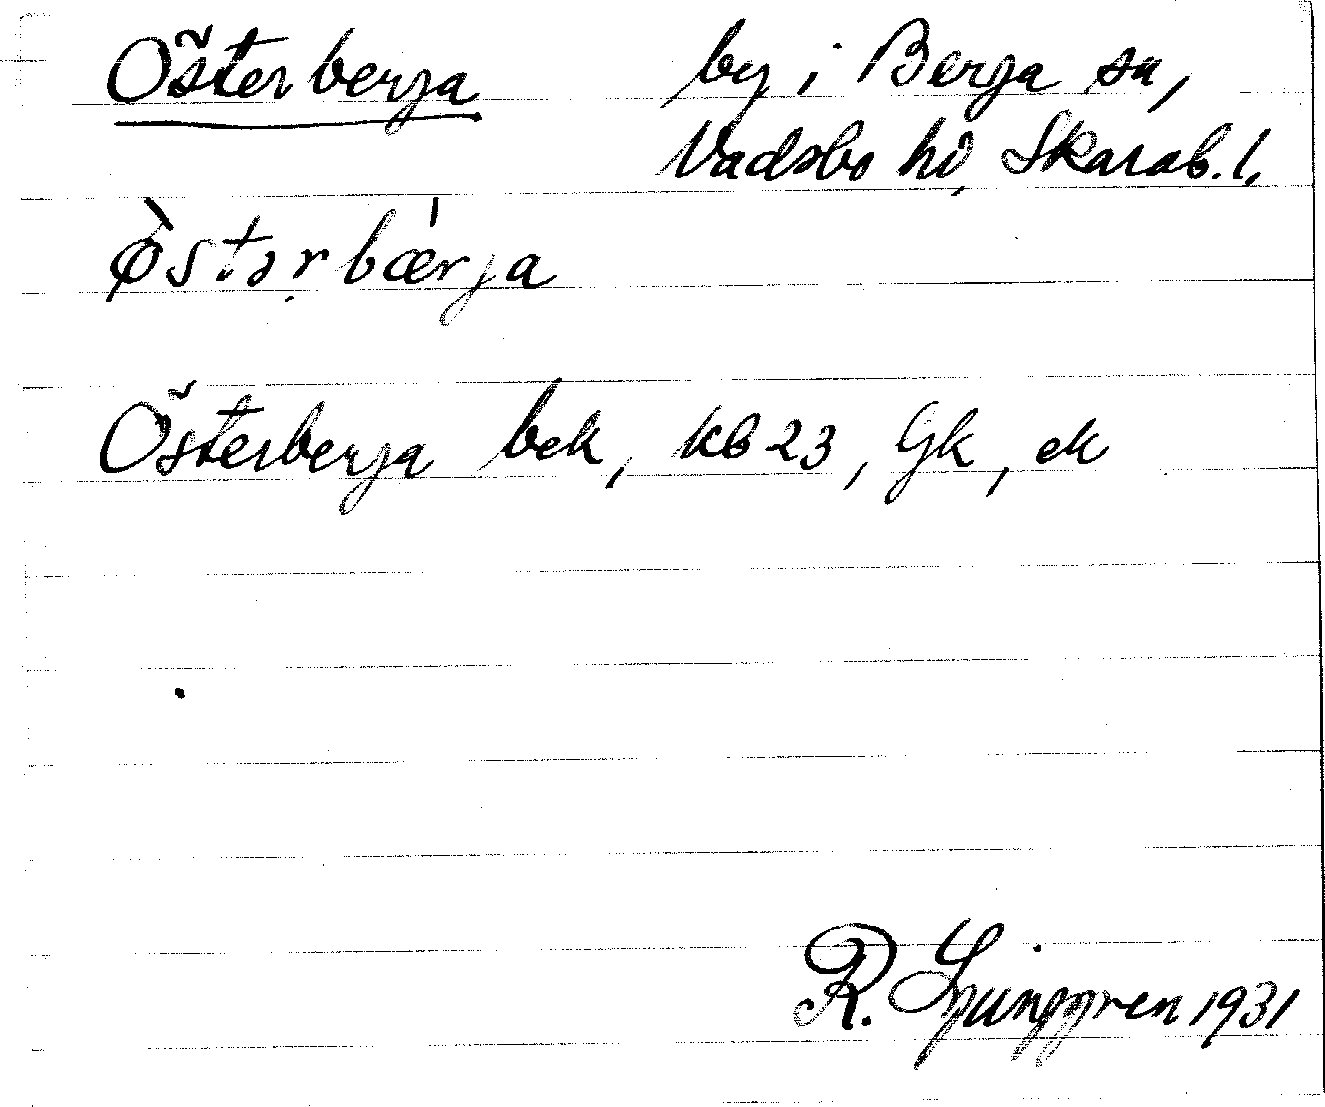 Österberga by i Berga sn,
Vadsbo hd, Skarab. l.
ø̀stərbǽrja
Österberga bek, kb 23, Gk, ek
R. Ljunggren 1931